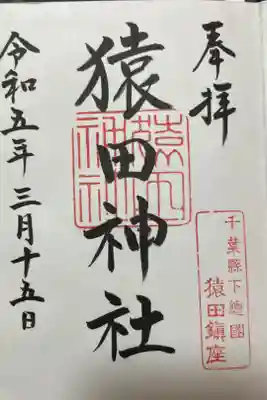 奉拝
千葉縣下總國
猿田鎮座
猿田神社
猿田神社
令和五年三月十五日